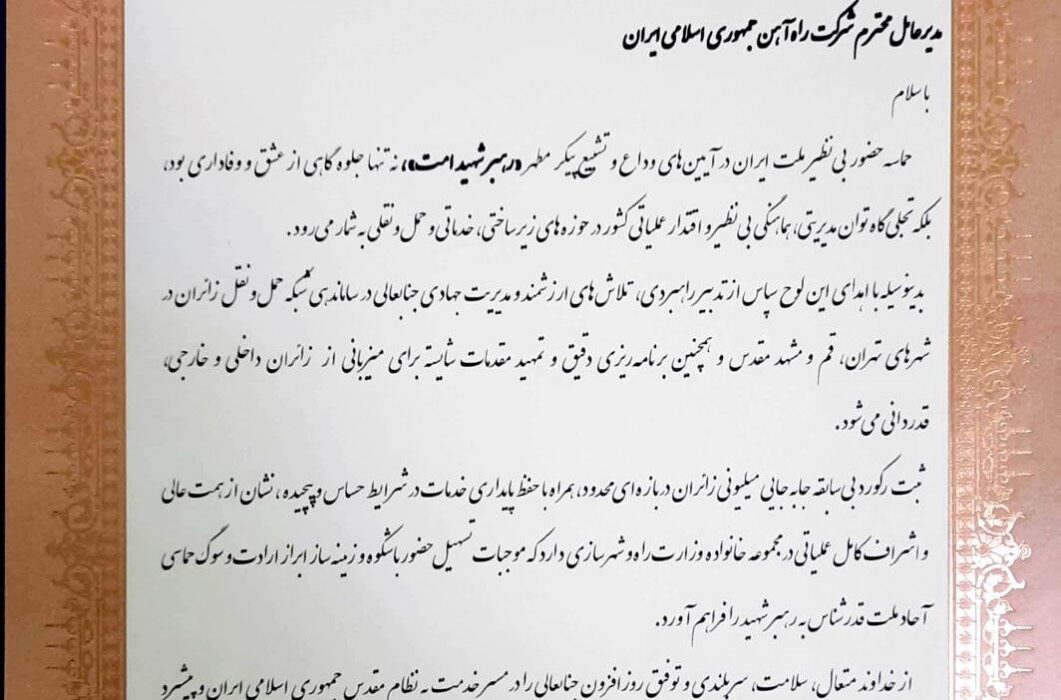 مدیرعامل محترم شرکت راه آهن جمهوری اسلامی ایران
با سلام
حماسه حضور بی نظیر ملت ایران در آیین های وداع و تشییع پیکر مطهر «رهبر شهید امت»، نه تنها جلوه گاهی از عشق و وفاداری بود،
بلکه تجلی گاه توان مدیریتی، هماهنگی بی نظیر و اقتدار عملیاتی کشور در حوزه های زیرساختی، خدماتی و حمل و نقلی به شمار می رود.
بدینوسیله با اهدای این لوح سپاس از تدبیر راهبردی، تلاش های ارزشمند و مدیریت جهادی جنابعالی در ساماندهی شبکه حمل و نقل زائران در
شهرهای تهران، قم و مشهد مقدس و همچنین برنامه ریزی دقیق و تمهید مقدمات شایسته برای میزبانی از زائران داخلی و خارجی،
قدردانی می شود.
ثبت رکورد بی سابقه جابه جایی میلیونی زائران در بازه ای محدود، همراه با حفظ پایداری خدمات در شرایط حساس و پیچیده، نشان از همت عالی
و اشراف کامل عملیاتی در مجموعه خانواده وزارت راه و شهرسازی دارد که موجبات تسهیل حضور باشکوه و زمینه ساز ابراز ارادت و سوگ حماسی
آحاد ملت قدرشناس به رهبر شهید را فراهم آورد.
از خداوند متعال، سلامت، سربلندی و توفیق روزافزون جنابعالی را در مسیر خدمت به نظام مقدس جمهوری اسلامی ایران و پیشبرد